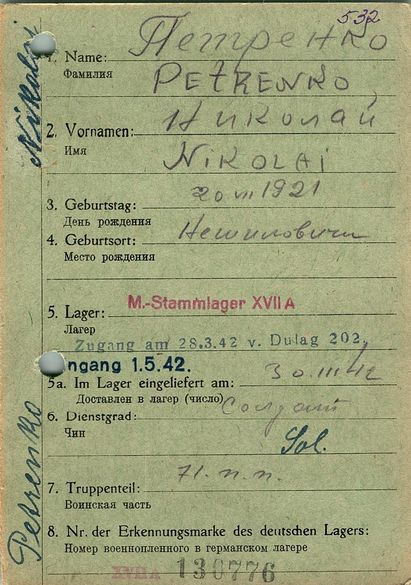 532
1. Name: Петренко
Фамилия
PETRENKO
2. Vornamen: Николай
Имя
NIKOLAI
3. Geburtstag: 20 VII 1921
День рождения
4. Geburtsort:
Место рождения
5. Lager: M.-Stammlager XVII A
Лагер
Zugang am 28.3.42 v. Dulag 202
ngang 1.5.42.
5a. Im Lager eingeliefert am: 30.III.42
Доставлен в лагер (число)
6. Dienstgrad: Солдат
Чин
Sol.
71. п.п.
7. Truppenteil:
Воинская часть
8. Nr. der Erkennungsmarke des deutschen Lagers:
Номер военнопленного в германском лагере
XVIIA 130776
Nikolai
Petrenko